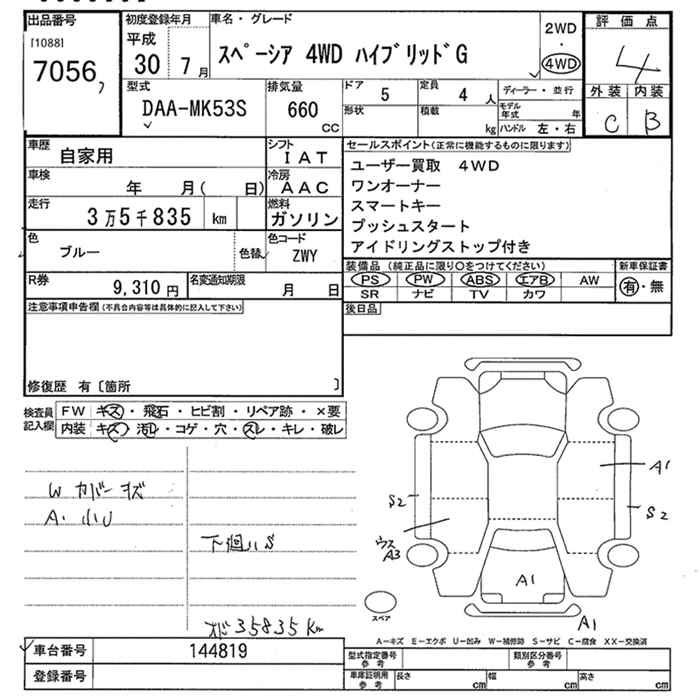 出品番号
[1088]
7056
初度登録年月
平成
30 7月
車名・グレード
スペーシア 4WD ハイブリッドG
2WD
・
4WD
評価点
4
型式
DAA-MK53S
排気量
660
CC
ドア
5
定員
4 人
形状
積載
kg
ディーラー・並行
モデル年式
年
ハンドル 左・右
外装 内装
C B
車歴
自家用
シフト
IAT
車検
年 月( 日)
冷房
AAC
走行
3万5千835 km
燃料
ガソリン
色
ブルー
色替
色コード
ZWY
R券
9,310円
名変通知期限
月 日
セールスポイント(正常に機能するものに限ります)
ユーザー買取 4WD
ワンオーナー
スマートキー
プッシュスタート
アイドリングストップ付き
装備品(純正品に限り○をつけてください)
PS PW ABS エアB AW
SR ナビ TV カワ
新車保証書
有・無
後日品
注意事項申告欄(不具合内容等は具体的に記入して下さい)
修復歴 有〔箇所 〕
検査員
記入欄
FW キズ・飛石・ヒビ割・リペア跡・×要
内装 キズ・汚レ・コゲ・穴・スレ・キレ・破レ
W カバーキズ
A・小U
下廻りS
35835Km
A1
S2
S2
ウス
A3
A1
A1
スペア
A-キズ E-エクボ U-凹み W-補修跡 S-サビ C-腐食 XX-交換済
車台番号
144819
登録番号
型式指定番号
参考
類別区分番号
参考
車庫証明用
参考
長さ cm
幅 cm
高さ cm